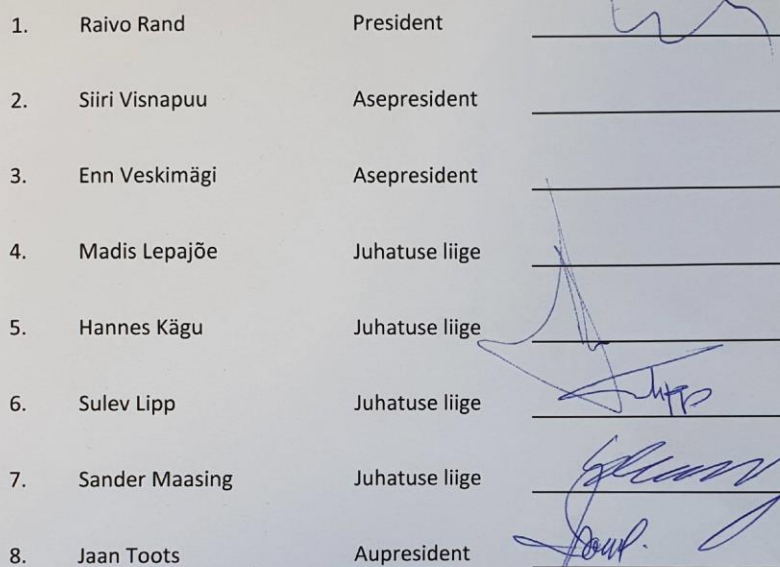 1. Raivo Rand President
2. Siiri Visnapuu Asepresident
3. Enn Veskimägi Asepresident
4. Madis Lepajõe Juhatuse liige
5. Hannes Kägu Juhatuse liige
6. Sulev Lipp Juhatuse liige
7. Sander Maasing Juhatuse liige
8. Jaan Toots Aupresident